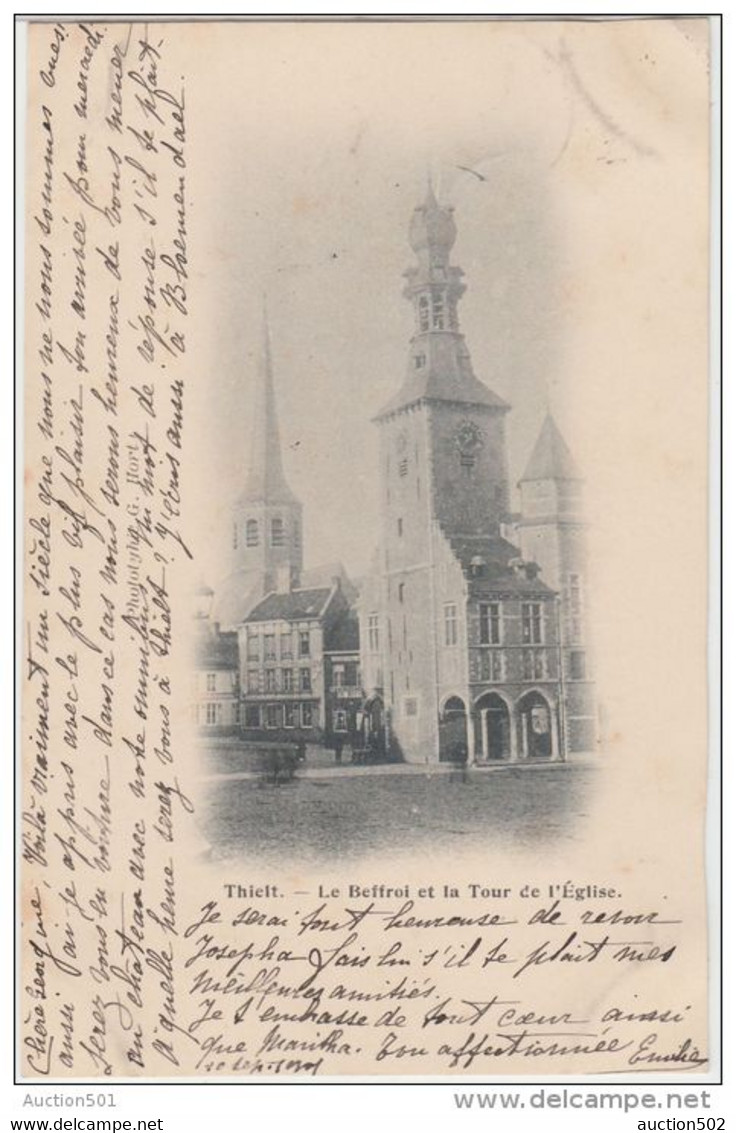 Chère
Voilà vraiment un siècle que nous ne nous sommes vues!
aussi ai-je appris avec le plus vif plaisir ton arrivée pour mercredi.
Serez vous en voiture dans ce cas nous serons heureux de vous mener
au château avec notre omnibus Un mot de réponse s'il te plait.
A quelle heure serez vous à thielt? Y écris aussi à Bloemendael
Phototypie G. Hert
Thielt. — Le Beffroi et la Tour de l'Église.
Je serai tout heureuse de revoir
Josepha fais lui s'il te plait mes
meilleures amitiés.
Je t'embrasse de tout cœur aussi
que Martha. Ton affectionnée Emilie
10 Sep. 1901
Auction501
delcampe.net
auction502
auction502